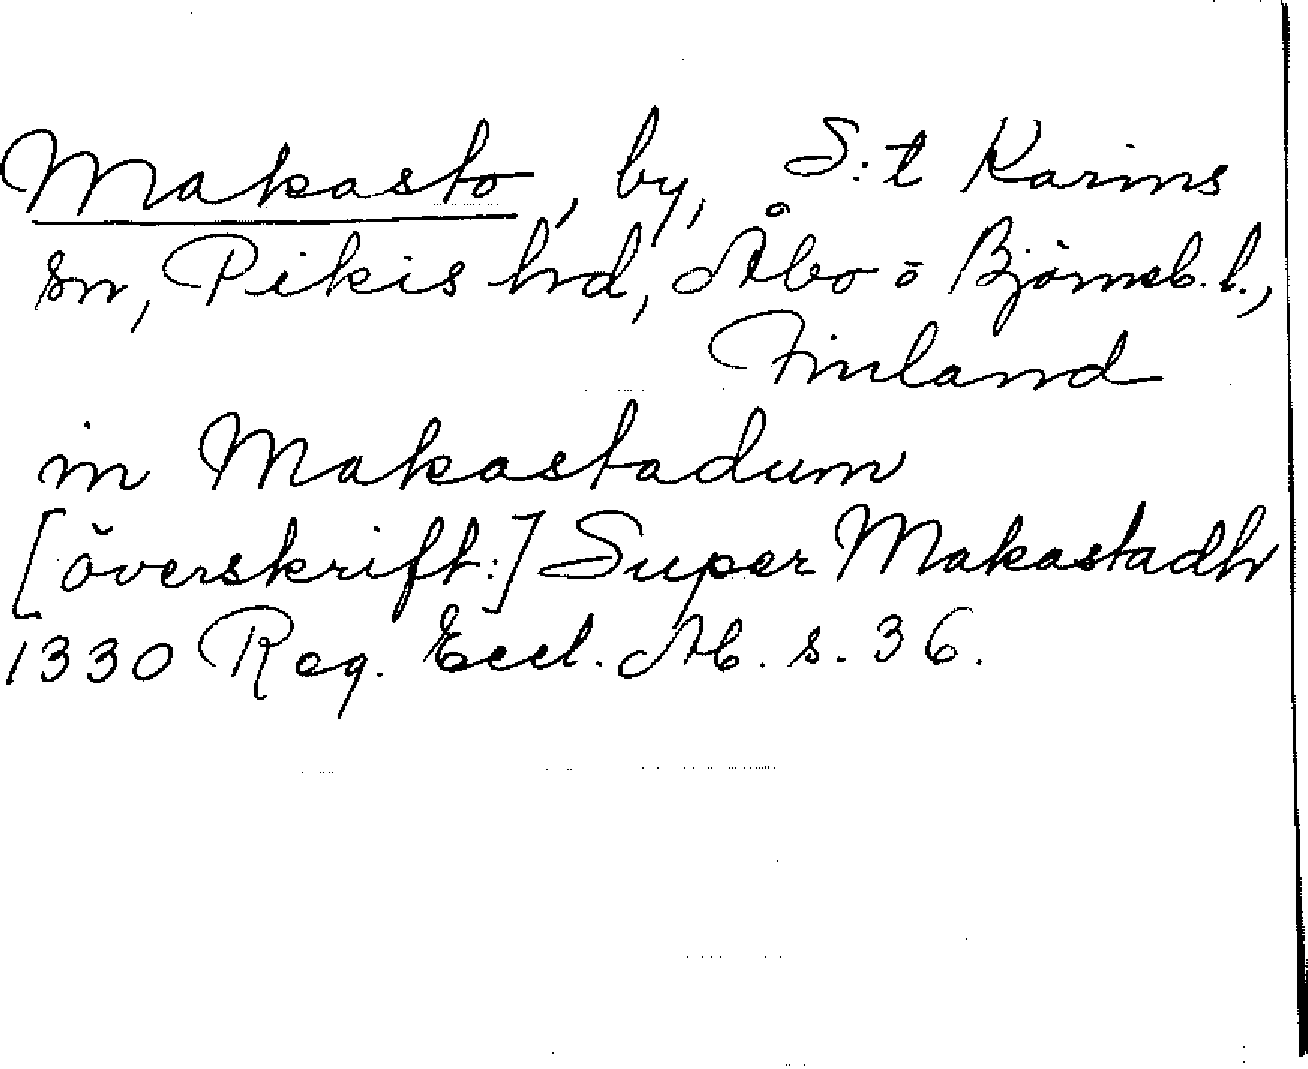 Makasto, by, S:t Karins
sn, Pikis hd, Åbo o Björneb. l.,
Finland
in Makastadum
[överskrift:] Super Makastadh
1330 Reg. Eccl. Ab. s. 36.